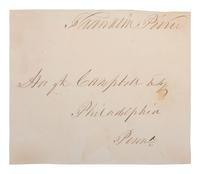 Franklin Pierce
Hugh Campbell Esq
Philadelphia
Penna